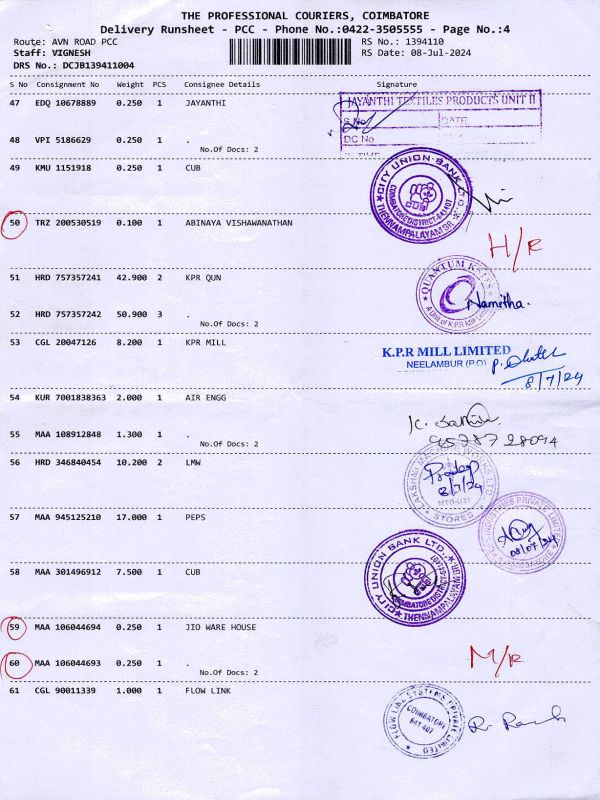 THE PROFESSIONAL COURIERS, COIMBATORE
Delivery Runsheet - PCC - Phone No.:0422-3505555 - Page No.:4
Route: AVN ROAD PCC RS No.: 1394110
Staff: VIGNESH RS Date: 08-Jul-2024
DRS No.: DCJB139411004
S No Consignment No Weight PCS Consignee Details Signature
47 EDQ 10678889 0.250 1 JAYANTHI
JAYANTHI TEXTILES PRODUCTS UNIT II
S.No DATE
DC No
48 VPI 5186629 0.250 1 .
No.Of Docs: 2
49 KMU 1151918 0.250 1 CUB
CITY UNION BANK LTD.
COIMBATORE DISTRICT-641407
THENNAMPALAYAM BR.
50 TRZ 200530519 0.100 1 ABINAYA VISHAWANATHAN
H/R
51 HRD 757357241 42.900 2 KPR QUN
QUANTUM KNITS
A Unit of K.P.R Mill Limited
Namitha.
52 HRD 757357242 50.900 3 .
No.Of Docs: 2
53 CGL 20047126 8.200 1 KPR MILL
K.P.R MILL LIMITED
NEELAMBUR (P.O)
8/7/24
54 KUR 7001838363 2.000 1 AIR ENGG
95787 28094
55 MAA 108912848 1.300 1 .
No.Of Docs: 2
56 HRD 346840454 10.200 2 LMW
LAKSHMI MACHINE WORKS LTD
Pradeep
8/7/24
MTD-U21
STORES
57 MAA 945125210 17.000 1 PEPS
INDUSTRIES PRIVATE LIMITED
08/07/24
58 MAA 301496912 7.500 1 CUB
CITY UNION BANK LTD.
COIMBATORE DISTRICT-641407
THENNAMPALAYAM BR.
59 MAA 106044694 0.250 1 JIO WARE HOUSE
60 MAA 106044693 0.250 1 .
M/R
No.Of Docs: 2
61 CGL 90011339 1.000 1 FLOW LINK
FLOW LINK SYSTEMS PRIVATE LIMITED
COIMBATORE
641 407